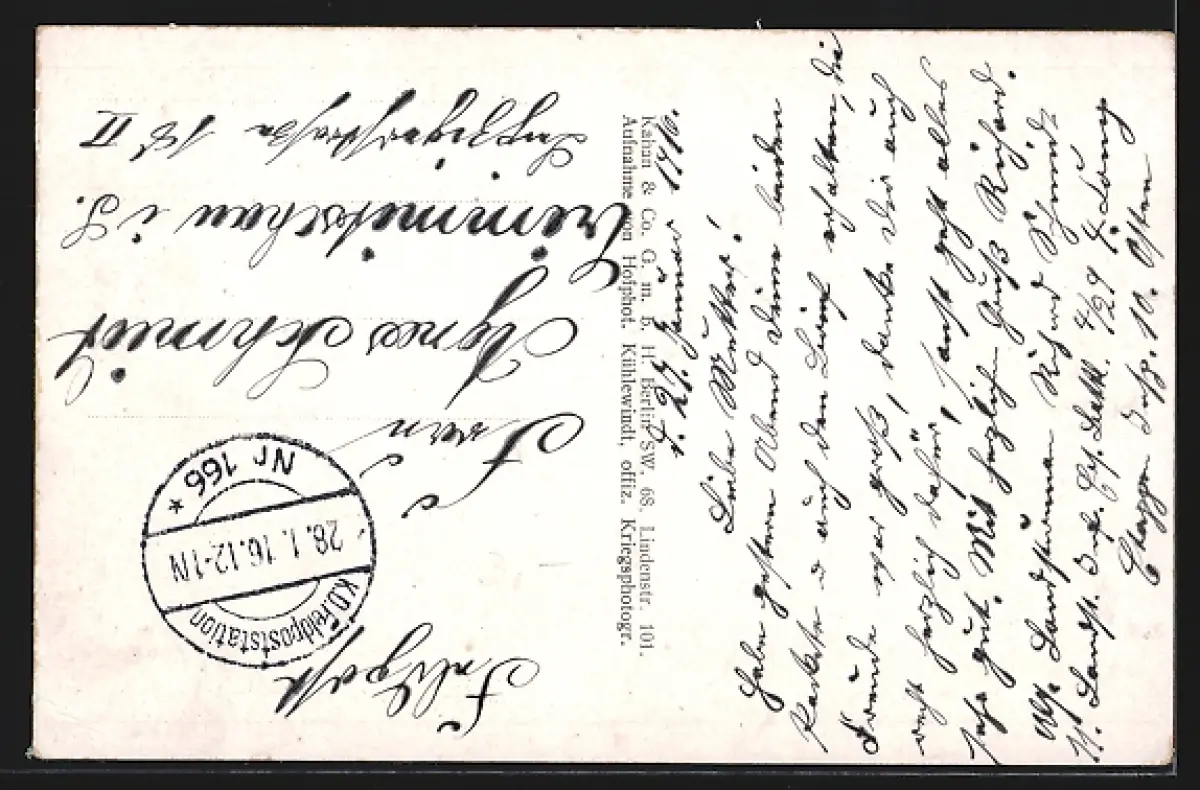 Feldpost
Frau
Agnes Schmidt
Crimmitschau i/S.
Leipzigerstraße 18 II
K.D. Feldpoststation
28.1.16.12-1N
Nr 166 *
Aufnahme von Hofphot. Kühlewindt, offiz. Kriegsphotogr.
Kahan & Co. G. m. b. H. Berlin SW. 68. Lindenstr. 101.
d. 27. Januar 1916.
Liebe Mutter!
Habe gestern Abend Deine beiden
Pakete u auch den Brief erhalten, die
Freude war groß, danke Dir auch
recht herzlich dafür, sonst geht alles
sehr gut. Mit herzlichen Gruß Richard.
Abs. Landsturmm Richard Schmidt
Landst. Inf. Ers. Batl.
Etappen Insp. 10. Osten